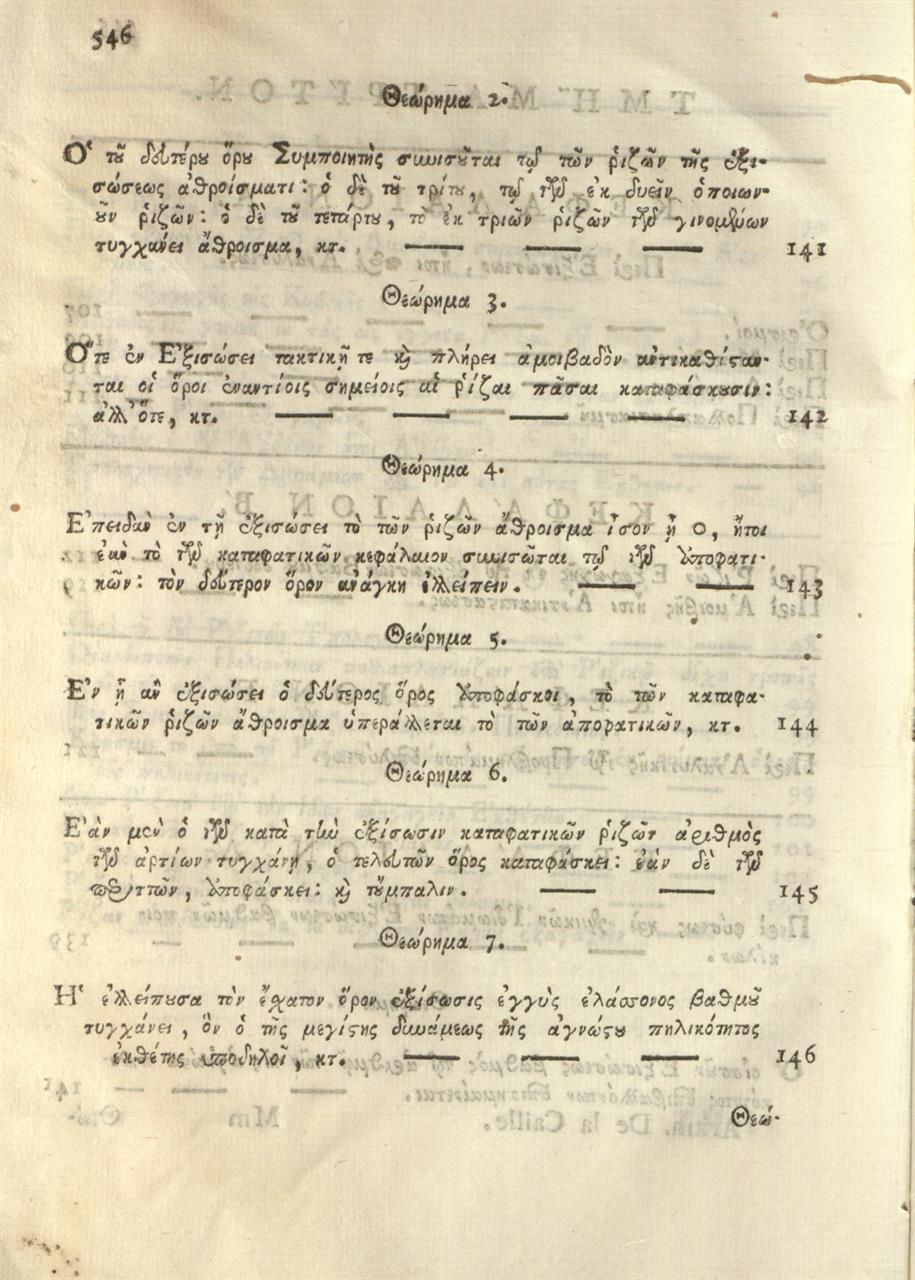 546
Θεώρημα 2.
Ὁ τοῦ δευτέρου ὅρου Συμποιητὴς συνισοῦται τῷ τῶν ῥιζῶν τῆς ἐξι-
σώσεως ἀθροίσματι: ὁ δὲ τοῦ τρίτου, τῷ τῶν ἐκ δυεῖν ὁποιων-
οῦν ῥιζῶν: ὁ δὲ τοῦ τετάρτου, τὸ ἐκ τριῶν ῥιζῶν τῶν γινομένων
τυγχάνει ἄθροισμα, κτ. 141
Θεώρημα 3.
Ὅτε ἐν Ἐξισώσει τακτικῇ τε καὶ πλήρει ἀμοιβαδὸν ἀντικαθίσταν-
ται οἱ ὅροι ἐναντίοις σημείοις αἱ ῥίζαι πᾶσαι καταφάσκουσιν:
ἀλλ' ὅτε, κτ. 142
Θεώρημα 4.
Ἐπειδὰν ἐν τῇ ἐξισώσει τὸ τῶν ῥιζῶν ἄθροισμα ἶσον ᾖ 0, ἤτοι
ἐὰν τὸ τῶν καταφατικῶν κεφάλαιον συνισῶται τῷ τῶν ὑποφατι-
κῶν: τὸν δεύτερον ὅρον ἀνάγκη ἐλλείπειν. 143
Θεώρημα 5.
Ἐν ᾗ ἂν ἐξισώσει ὁ δεύτερος ὅρος ὑποφάσκοι, τὸ τῶν καταφα-
τικῶν ῥιζῶν ἄθροισμα ὑπεράλλεται τὸ τῶν ἀποφατικῶν, κτ. 144
Θεώρημα 6.
Ἐὰν μὲν ὁ τῶν κατὰ τὴν ἐξίσωσιν καταφατικῶν ῥιζῶν ἀριθμὸς
τῶν ἀρτίων τυγχάνῃ, ὁ τελευτῶν ὅρος καταφάσκει: ἐὰν δὲ τῶν
περιττῶν, ὑποφάσκει: καὶ τοὔμπαλιν. 145
Θεώρημα 7.
Ἡ ἐλλείπουσα τὸν ἔσχατον ὅρον ἐξίσωσις ἐγγὺς ἐλάσσονος βαθμοῦ
τυγχάνει, ὃν ὁ τῆς μεγίστης δυνάμεως τῆς ἀγνώστου πηλικότητος
ἐκθέτης ὑποδηλοῖ, κτ. 146
Θεώ-